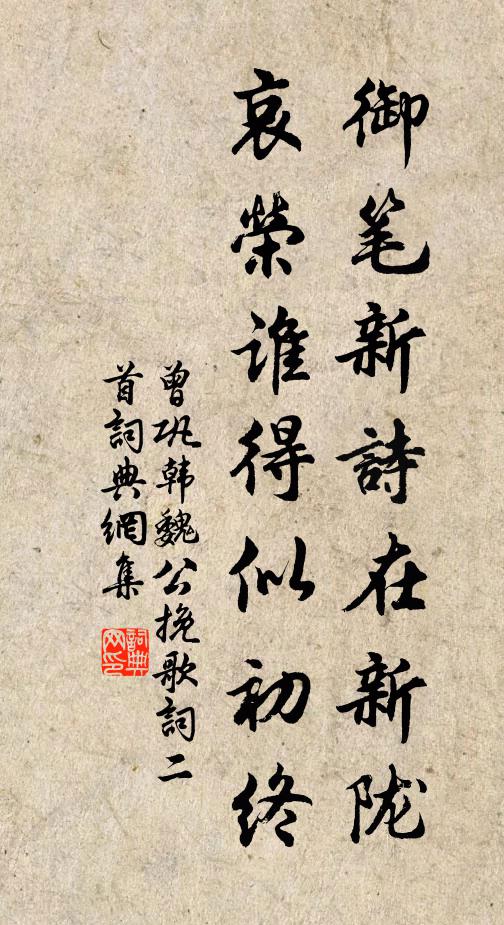 御笔新詩在新陇
哀榮誰得似初終
曾巩韩魏公挽歌詞二
首詞典網集
詞典网印